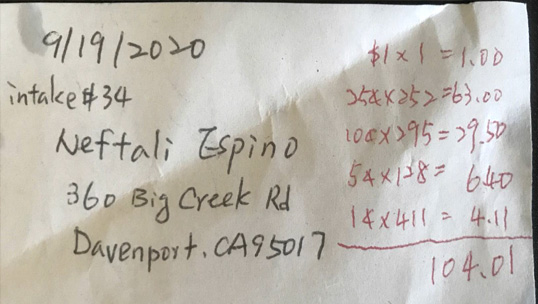 9/19/2020
intake#34
Neftali Espino
360 Big Creek Rd
Davenport, CA95017
$1 x 1 = 1.00
25¢ x 252 = 63.00
10¢ x 295 = 29.50
5¢ x 128 = 6.40
1¢ x 411 = 4.11
104.01